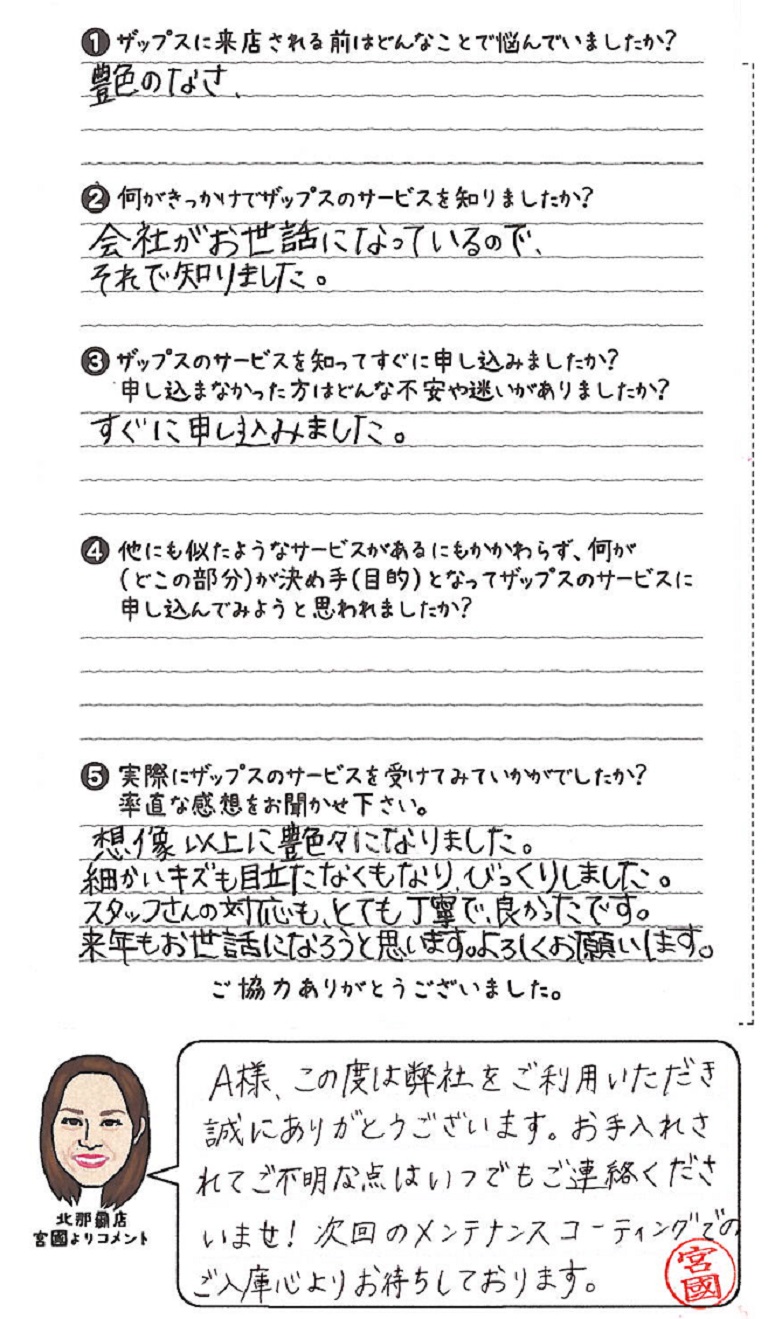 ❶ ザップスに来店される前はどんなことで悩んでいましたか?
艶色のなさ、
❷ 何がきっかけでザップスのサービスを知りましたか?
会社がお世話になっているので、
それで知りました。
❸ ザップスのサービスを知ってすぐに申し込みましたか?
申し込まなかった方はどんな不安や迷いがありましたか?
すぐに申し込みました。
❹ 他にも似たようなサービスがあるにもかかわらず、何が
(どこの部分)が決め手(目的)となってザップスのサービスに
申し込んでみようと思われましたか?
❺ 実際にザップスのサービスを受けてみていかがでしたか?
率直な感想をお聞かせ下さい。
想像以上に艶色々になりました。
細かいキズも目立たなくもなり、びっくりしました。
スタッフさんの対応も、とても丁寧で、良かったです。
来年もお世話になろうと思います。よろしくお願いします。
ご協力ありがとうございました。
A様、この度は弊社をご利用いただき
誠にありがとうございます。お手入れさ
れてご不明な点はいつでもご連絡くださ
いませ!次回のメンテナンスコーティングでの
ご入庫心よりお待ちしております。
宮國
北那覇店
宮國よりコメント